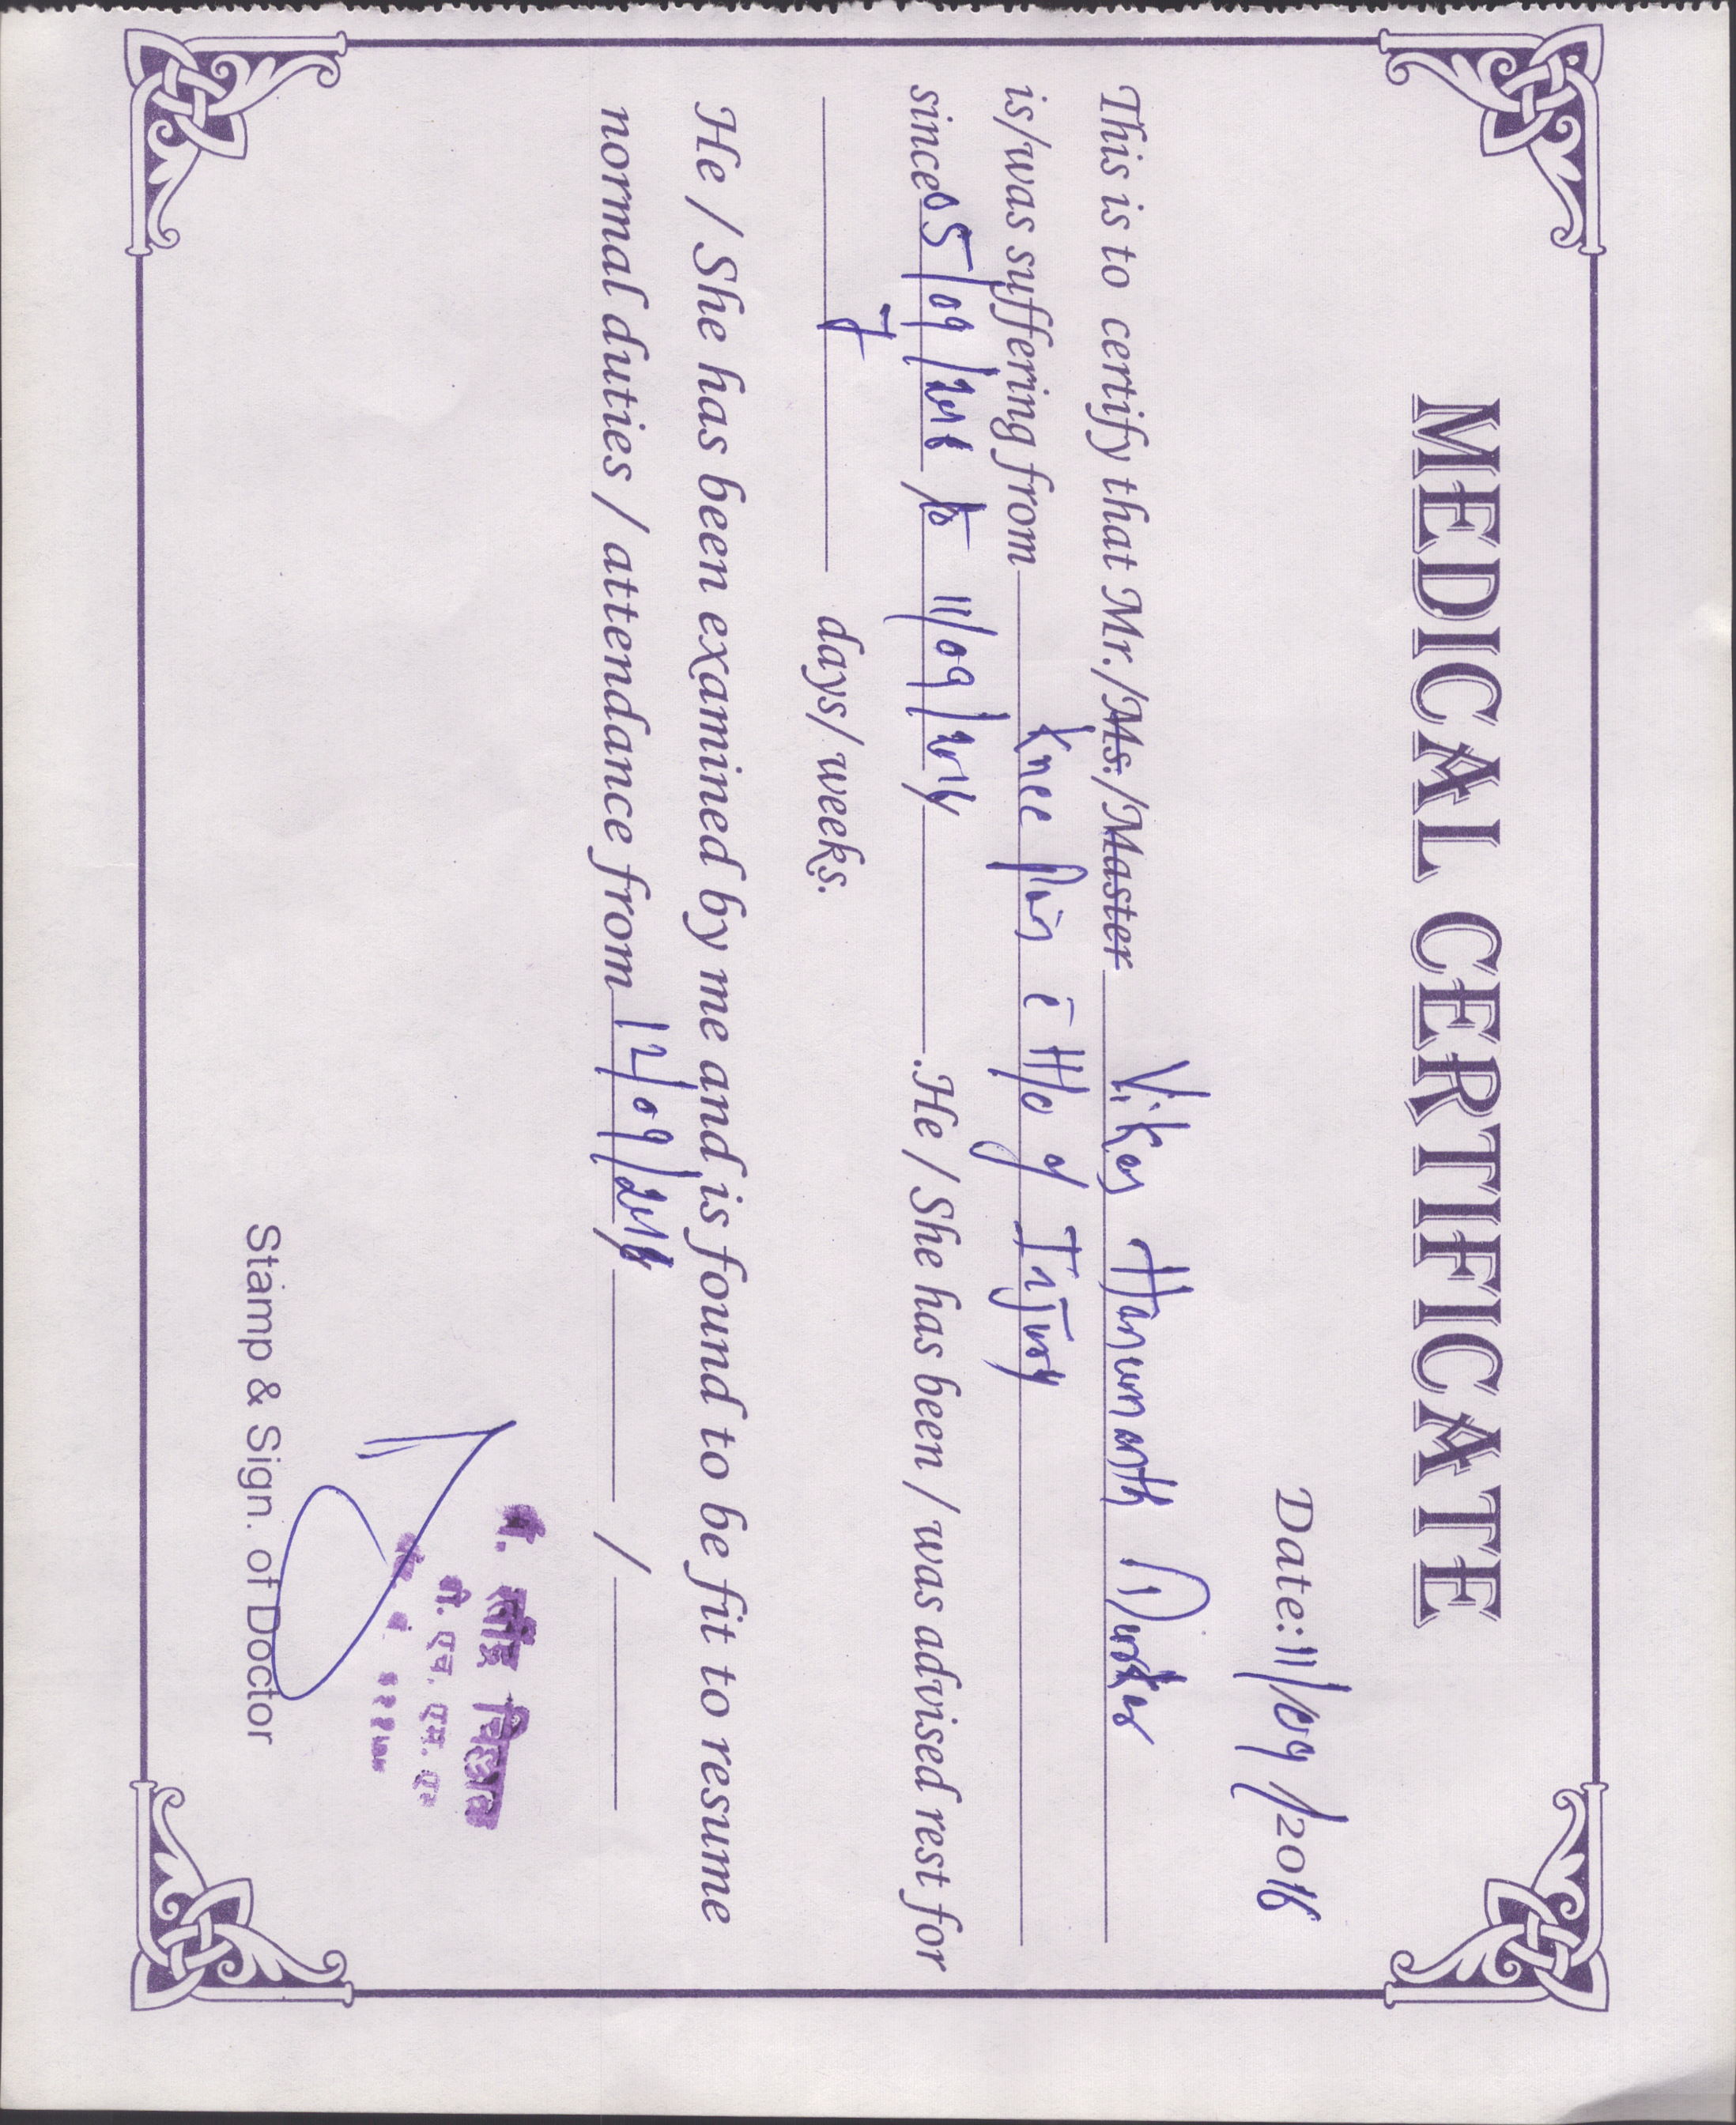 MEDICAL CERTIFICATE
Date: 11/09/2016
This is to certify that Mr./Ms./Master Vikas Hanumanth
is/was suffering from Knee Pain c̄ H/o of Injury
since 05/09/2016 to 11/09/2016 . He / She has been / was advised rest for
7 days/ weeks.
He / She has been examined by me and is found to be fit to resume
normal duties / attendance from 12/09/2016 /
Stamp & Sign. of Doctor